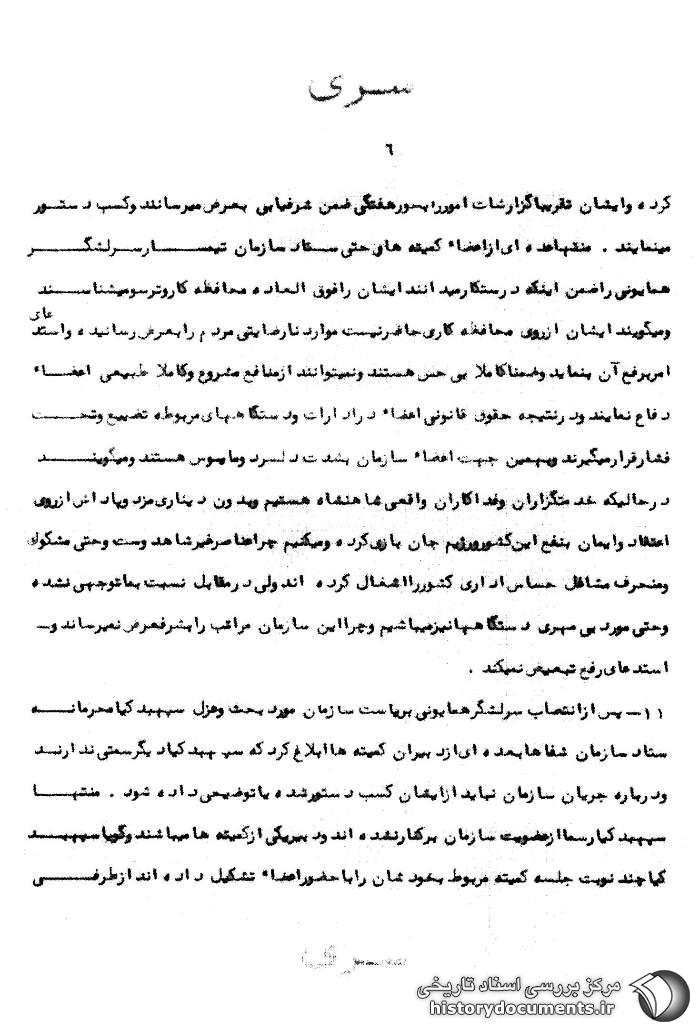 سری
٦
کرده وایشان تقریباگزارشات اموررابطورهفتگی ضمن شرفیابی بعرض میرسانند وکسب دستور
مینمایند . منتهاعده ای ازاعضاء کمیته های حتی ستاد سازمان تیمسارسرلشگر
همایونی راضمن اینکه درستکارمیدانند ایشان رافوق العاده محافظه کاروترسومیشناسند
ومیگویند ایشان ازروی محافظه کاری حاضرنیست موارد نارضایتی مردم رابعرض رسانیده واستدعای
امربرفع آن بنماید وضمناکاملا بی حس هستند ونمیتوانند ازمنافع مشروع وکاملا طبیعی اعضاء
دفاع نمایند ودرنتیجه حقوق قانونی اعضاء درادارات ودستگاههای مربوطه تضییع وتحت
فشارقرارمیگیرند وبهمین جهت اعضاء سازمان بشدت دلسرد ومایوس هستند ومیگویند
درحالیکه خدمتگزاران وفداکاران واقعی شاهنشاه هستیم وبدون دیناری مزد وپاداش ازروی
اعتقاد وایمان بنفع این کشورورژیم جان بازی کرده ومیکنیم چراعناصرغیرشاهدوست وحتی مشکوک
ومنحرف مشاغل حساس اداری کشوررااشغال کرده اند ولی درمقابل نسبت بماتوجهی نشده
وحتی مورد بی مهری دستگاههانیزمیباشیم وچرااین سازمان مراتب رابشرفعرض نمیرساند و—
استدعای رفع تبعیض نمیکند .
۱۱— پس ازانتصاب سرلشگرهمایونی بریاست سازمان مورد بحث وعزل سپهبدکیامحرمانه
ستاد سازمان شفاهابعده ای ازدبیران کمیته هاابلاغ کرد که سپهبدکیادیگرسمتی ندارند
ودرباره جریان سازمان نباید ازایشان کسب دستورشده یاتوضیحی داده شود . منتها
سپهبدکیارسماازعضویت سازمان برکنارنشده اند ودبیریکی ازکمیته هامیباشند وگویاسپهبد
کیاچند نوبت جلسه کمیته مربوط بخودشان راباحضوراعضاء تشکیل داده اند ازطرفی
سری
مرکز بررسی اسناد تاریخی
historydocuments.ir